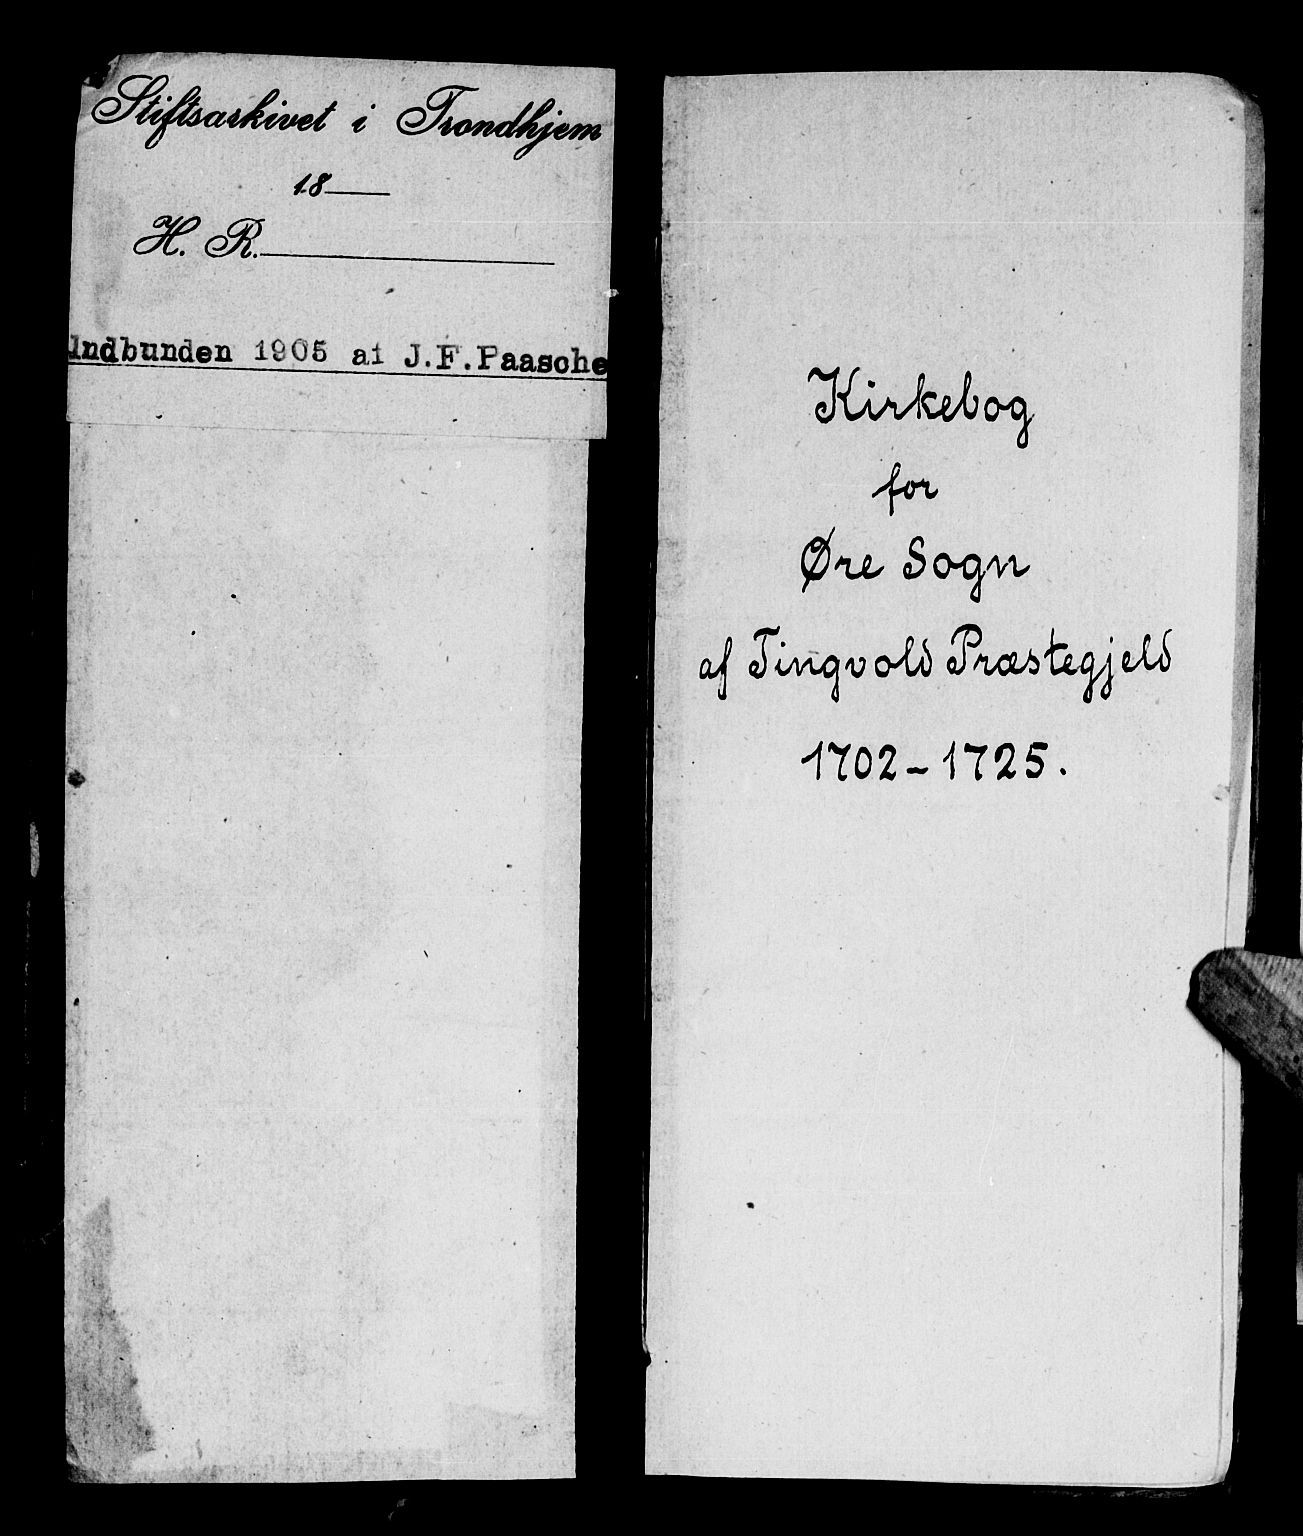 Stiftsarkivet i Trondhjem
18
H. R.
Indbunden 1905 af J.F.Paasche
Kirkebog
for
Øre Sogn
af Tingvold Præstegjeld
1702-1725.